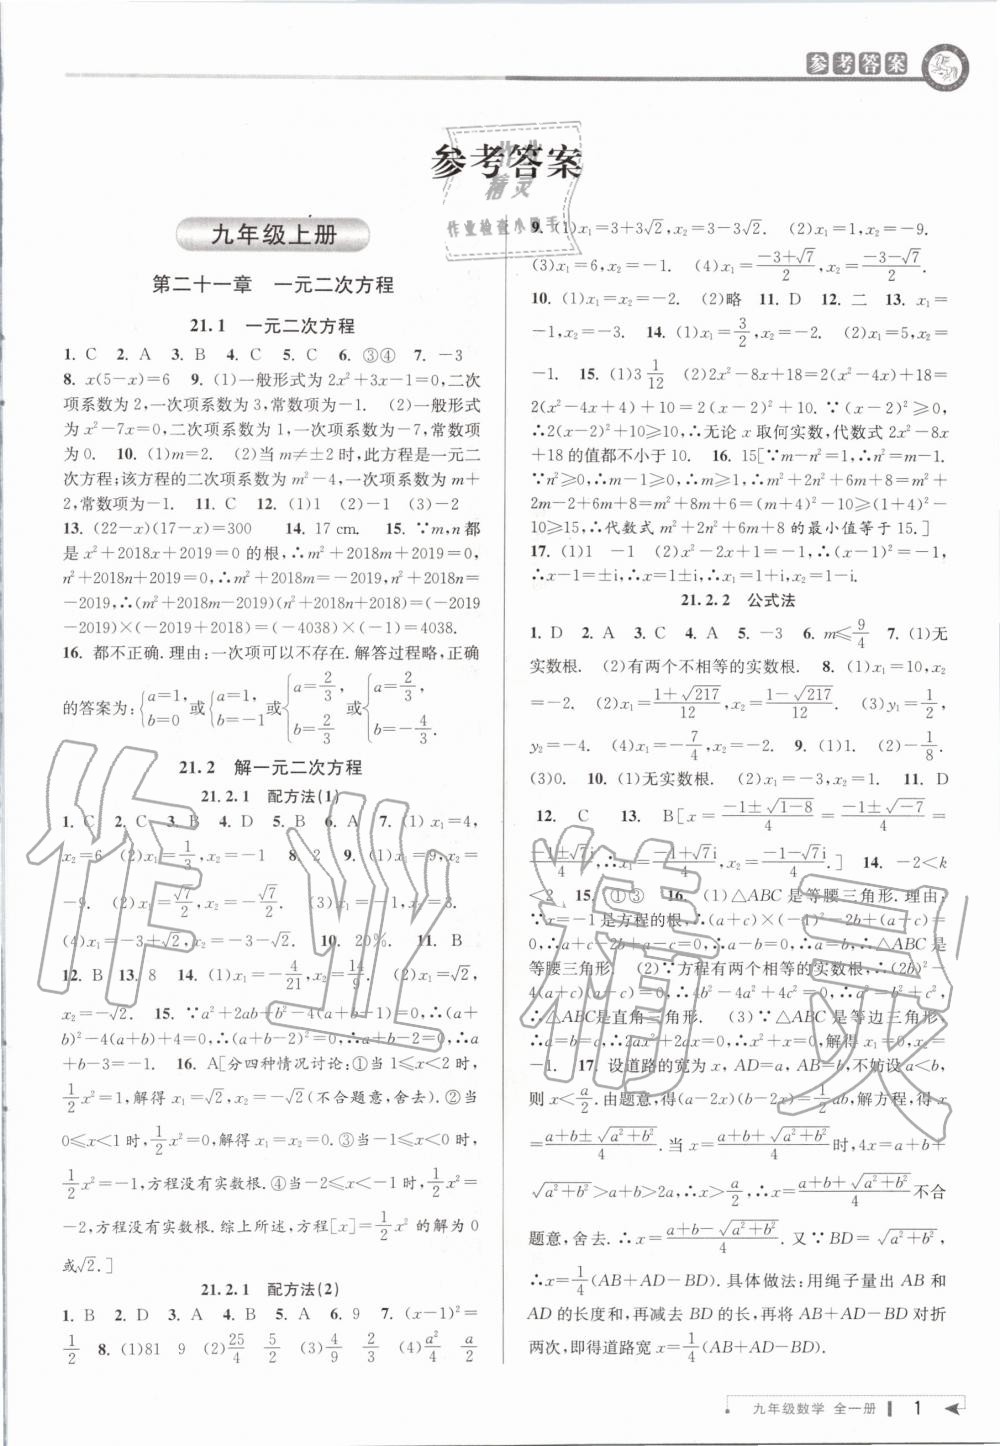 参考答案
参考答案
作业
精灵
作业检查小助手
九年级上册
第二十一章 一元二次方程
21.1 一元二次方程
1. C 2. A 3. B 4. C 5. C 6. ③④ 7. －3
8. x(5－x)=6 9. (1)一般形式为2x²+3x－1=0,二次
项系数为2,一次项系数为3,常数项为－1. (2)一般形式
为x²－7x=0,二次项系数为1,一次项系数为－7,常数项
为0. 10. (1)m=2. (2)当m≠±2时,此方程是一元二
次方程;该方程的二次项系数为m²－4,一次项系数为m+
2,常数项为－1. 11. C 12. (1)1 (2)－1 (3)－2
13. (22－x)(17－x)=300 14. 17 cm. 15. ∵m,n都
是x²+2018x+2019=0的根,∴m²+2018m+2019=0,
n²+2018n+2019=0,∴m²+2018m=－2019,n²+2018n=
－2019,∴(m²+2018m－2019)(n²+2018n+2018)=(－2019
－2019)×(－2019+2018)=(－4038)×(－1)=4038.
16. 都不正确.理由:一次项可以不存在.解答过程略,正确
的答案为:{a=1, b=0 或{a=1, b=－1 或{a=2/3, b=2/3 或{a=2/3, b=－4/3.
21.2 解一元二次方程
21.2.1 配方法(1)
1. C 2. C 3. B 4. D 5. B 6. A 7. (1)x₁=4,
x₂=6 (2)x₁=1/3,x₂=－1 8. 2 9. (1)x₁=9,x₂=
－9. (2)x₁=√7/2,x₂=－√7/2. (3)x₁=－1,x₂=3.
(4)x₁=－3+√2,x₂=－3－√2. 10. 20%. 11. B
12. B 13. 8 14. (1)x₁=－4/21,x₂=14/9. (2)x₁=√2,
x₂=－√2. 15. ∵a²+2ab+b²－4(a+b－1)=0,∴(a+
b)²－4(a+b)+4=0,∴(a+b－2)²=0,∴a+b－2=0,∴a
+b－3=－1. 16. A[分四种情况讨论:①当1≤x<2时,
1/2x²=1,解得x₁=√2,x₂=－√2(不合题意,舍去).②当
0≤x<1时,1/2x²=0,解得x₁=x₂=0.③当－1≤x<0时,
1/2x²=－1,方程没有实数根.④当－2≤x<－1时,1/2x²=
－2,方程没有实数根.综上所述,方程[x]=1/2x²的解为0
或√2.]
21.2.1 配方法(2)
1. B 2. D 3. A 4. B 5. A 6. 9 7. (x－1)²=
1/2 8. (1)81 9 (2)25/4 5/2 (3)4/9 2/3 (4)a²/4 a/2
9. (1)x₁=3+3√2,x₂=3－3√2. (2)x₁=1,x₂=－9.
(3)x₁=6,x₂=－1. (4)x₁=(－3+√7)/2,x₂=(－3－√7)/2.
10. (1)x₁=x₂=－2. (2)略 11. D 12. 二 13. x₁=
－1,x₂=－3. 14. (1)x₁=3/2,x₂=－2. (2)x₁=5,x₂=
－1. 15. (1)3 1/12 (2)2x²－8x+18=2(x²－4x)+18=
2(x²－4x+4)+10=2(x－2)²+10.∵(x－2)²≥0,
∴2(x－2)²+10≥10,∴无论x取何实数,代数式2x²－8x
+18的值都不小于10. 16. 15[∵m－n²=1,∴n²=m－1.
∵n²≥0,∴m－1≥0,∴m≥1,∴m²+2n²+6m+8=m²+
2m－2+6m+8=m²+8m+6=(m+4)²－10≥(1+4)²－
10≥15,∴代数式m²+2n²+6m+8的最小值等于15.]
17. (1)1 －1 (2)x²－2x+1=－1,∴(x－1)²=－1,
∴x－1=±i,∴x₁=1+i,x₂=1－i.
21.2.2 公式法
1. D 2. A 3. C 4. A 5. －3 6. m≤9/4 7. (1)无
实数根. (2)有两个不相等的实数根. 8. (1)x₁=10,x₂
=－2. (2)x₁=(1+√217)/12,x₂=(1－√217)/12. (3)y₁=1/2,
y₂=－4. (4)x₁=－7/4,x₂=－2. 9. (1)1. (2)－1/8.
(3)0. 10. (1)无实数根. (2)x₁=－3,x₂=1. 11. D
12. C 13. B[x=(－1±√(1－8))/4=(－1±√－7)/4=
(－1±√7i)/4,∴x₁=(－1+√7i)/4,x₂=(－1－√7i)/4.] 14. －2<k
<2 15. ①③ 16. (1)△ABC是等腰三角形.理由:
∵x=－1是方程的根,∴(a+c)×(－1)²－2b+(a－c)=
0,∴a+c－2b+a－c=0,∴a－b=0,∴a=b,∴△ABC是
等腰三角形. (2)∵方程有两个相等的实数根,∴(2b)²－
4(a+c)(a－c)=0,∴4b²－4a²+4c²=0,∴a²=b²+c²,
∴△ABC是直角三角形. (3)∵△ABC是等边三角形,
∴a=b=c,∴2ax²+2ax=0,∴x²+x=0,解得x₁=0,x₂=
－1. 17. 设道路的宽为x,AD=a,AB=b,不妨设a<b,
则x<a/2.由题意,得(a－2x)(b－2x)=1/2ab,解方程,得x
=(a+b±√(a²+b²))/4.当x=(a+b+√(a²+b²))/4时,4x=a+b+
√(a²+b²)>a+b>2a,∴x>a/2,∴x=(a+b+√(a²+b²))/4不合
题意,舍去.∴x=(a+b－√(a²+b²))/4.又∵BD=√(a²+b²),
∴x=1/4(AB+AD－BD).具体做法:用绳子量出AB和
AD的长度和,再减去BD的长,再将AB+AD－BD对折
两次,即得道路宽x=1/4(AB+AD－BD).
作业精灵
九年级数学 全一册 1